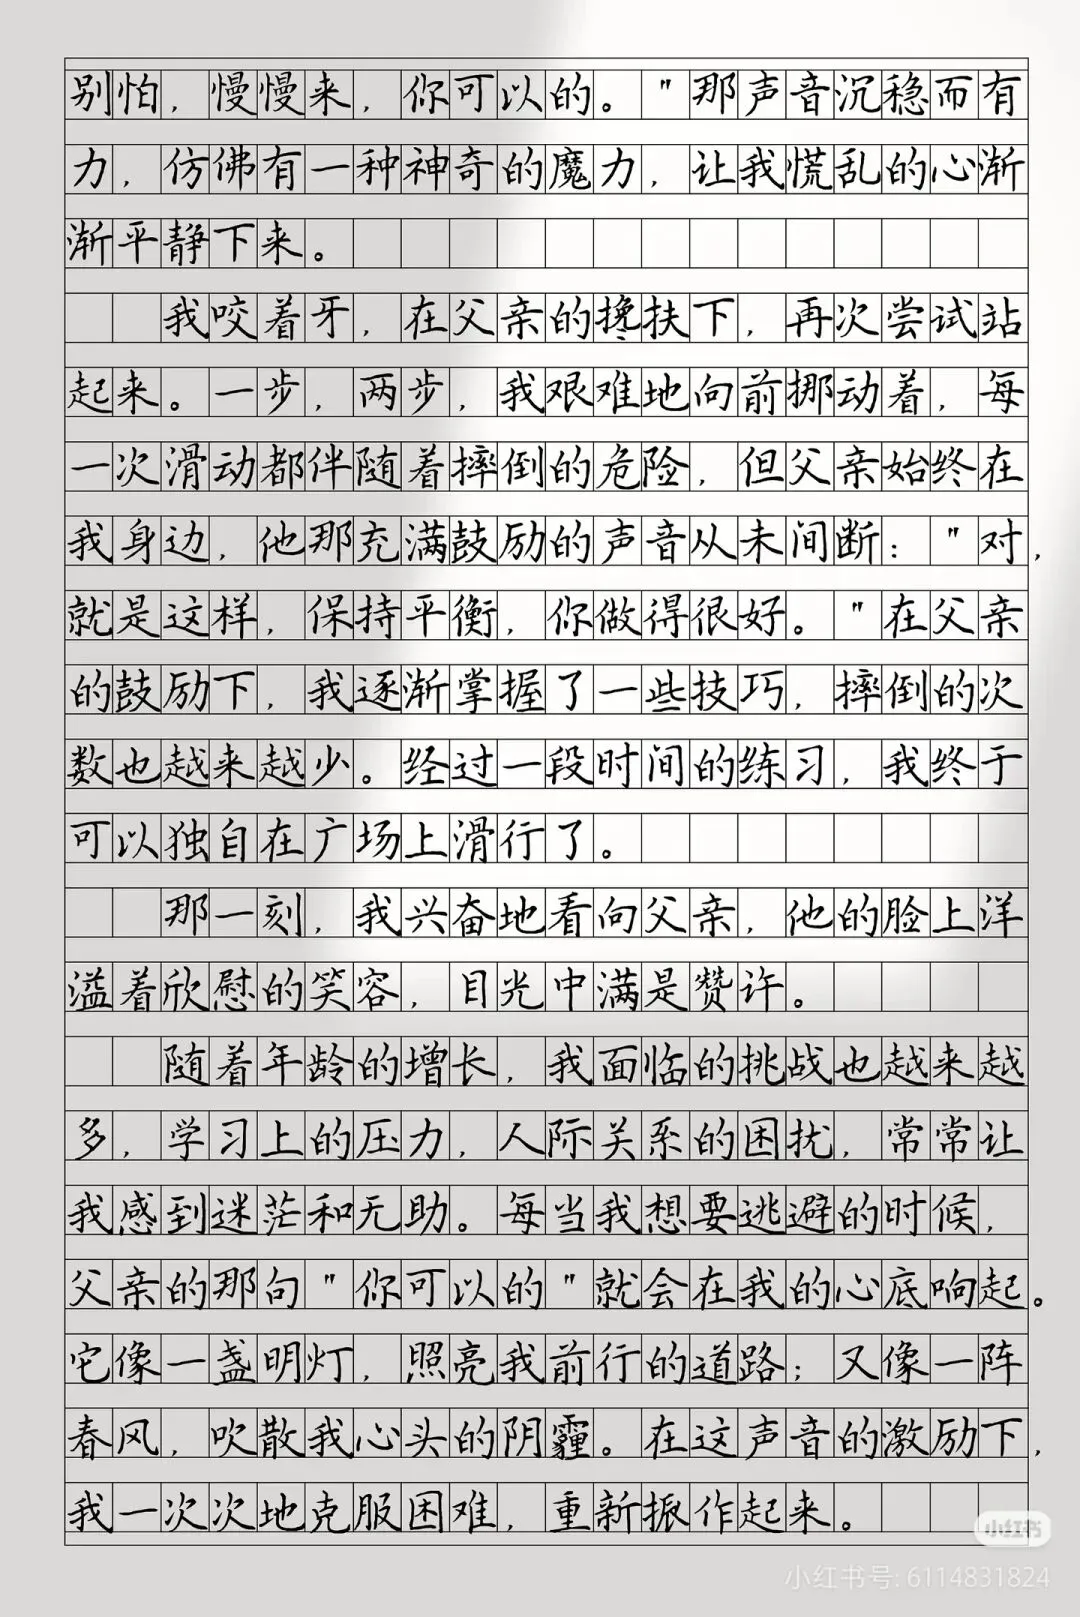 别怕，慢慢来，你可以的。"那声音沉稳而有
力，仿佛有一种神奇的魔力，让我慌乱的心渐
渐平静下来。
我咬着牙，在父亲的搀扶下，再次尝试站
起来。一步，两步，我艰难地向前挪动着，每
一次滑动都伴随着摔倒的危险，但父亲始终在
我身边，他那充满鼓励的声音从未间断："对，
就是这样，保持平衡，你做得很好。"在父亲
的鼓励下，我逐渐掌握了一些技巧，摔倒的次
数也越来越少。经过一段时间的练习，我终于
可以独自在广场上滑行了。
那一刻，我兴奋地看向父亲，他的脸上洋
溢着欣慰的笑容，目光中满是赞许。
随着年龄的增长，我面临的挑战也越来越
多，学习上的压力，人际关系的困扰，常常让
我感到迷茫和无助。每当我想要逃避的时候，
父亲的那句"你可以的"就会在我的心底响起。
它像一盏明灯，照亮我前行的道路；又像一阵
春风，吹散我心头的阴霾。在这声音的激励下，
我一次次地克服困难，重新振作起来。
小红书
小红书号: 6114831824